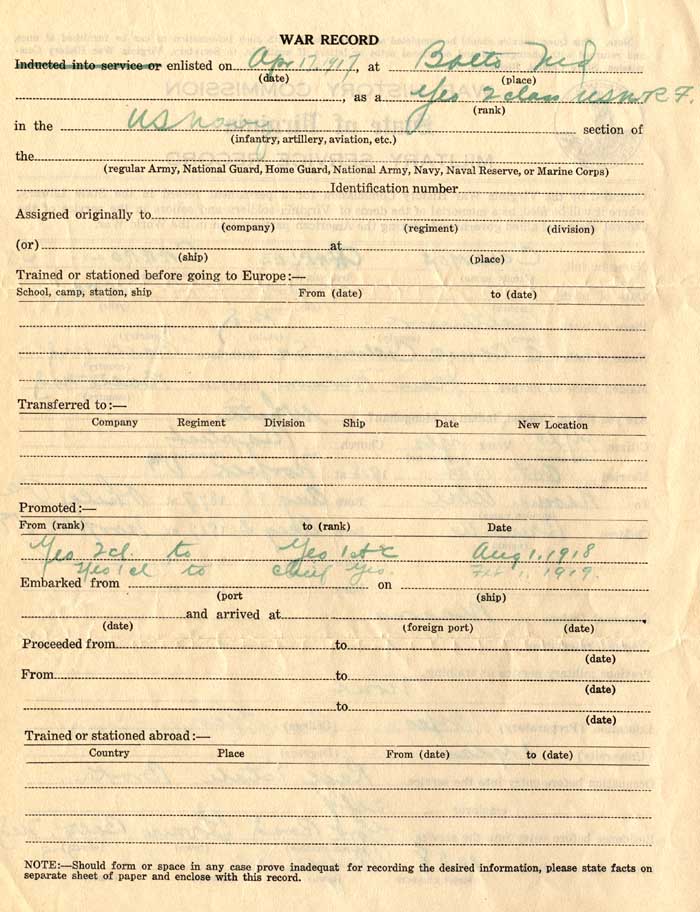 WAR RECORD
Inducted into service or enlisted on Apr 17, 1917, at Balto Md
(date) (place)
, as a Yeo 2 class USNRF
(rank)
in the US Navy section of
(infantry, artillery, aviation, etc.)
the
(regular Army, National Guard, Home Guard, National Army, Navy, Naval Reserve, or Marine Corps)
Identification number
Assigned originally to
(company) (regiment) (division)
(or) at
(ship) (place)
Trained or stationed before going to Europe:—
School, camp, station, ship From (date) to (date)
Transferred to:—
Company Regiment Division Ship Date New Location
Promoted:—
From (rank) to (rank) Date
Yeo 2cl. to Yeo 1st c Aug 1, 1918
Yeo 1cl to chief Yeo. Feb 1, 1919.
Embarked from on
(port (ship)
and arrived at
(date) (foreign port) (date)
Proceeded from to
(date)
From to
(date)
to
(date)
Trained or stationed abroad:—
Country Place From (date) to (date)
NOTE:—Should form or space in any case prove inadequat for recording the desired information, please state facts on
separate sheet of paper and enclose with this record.